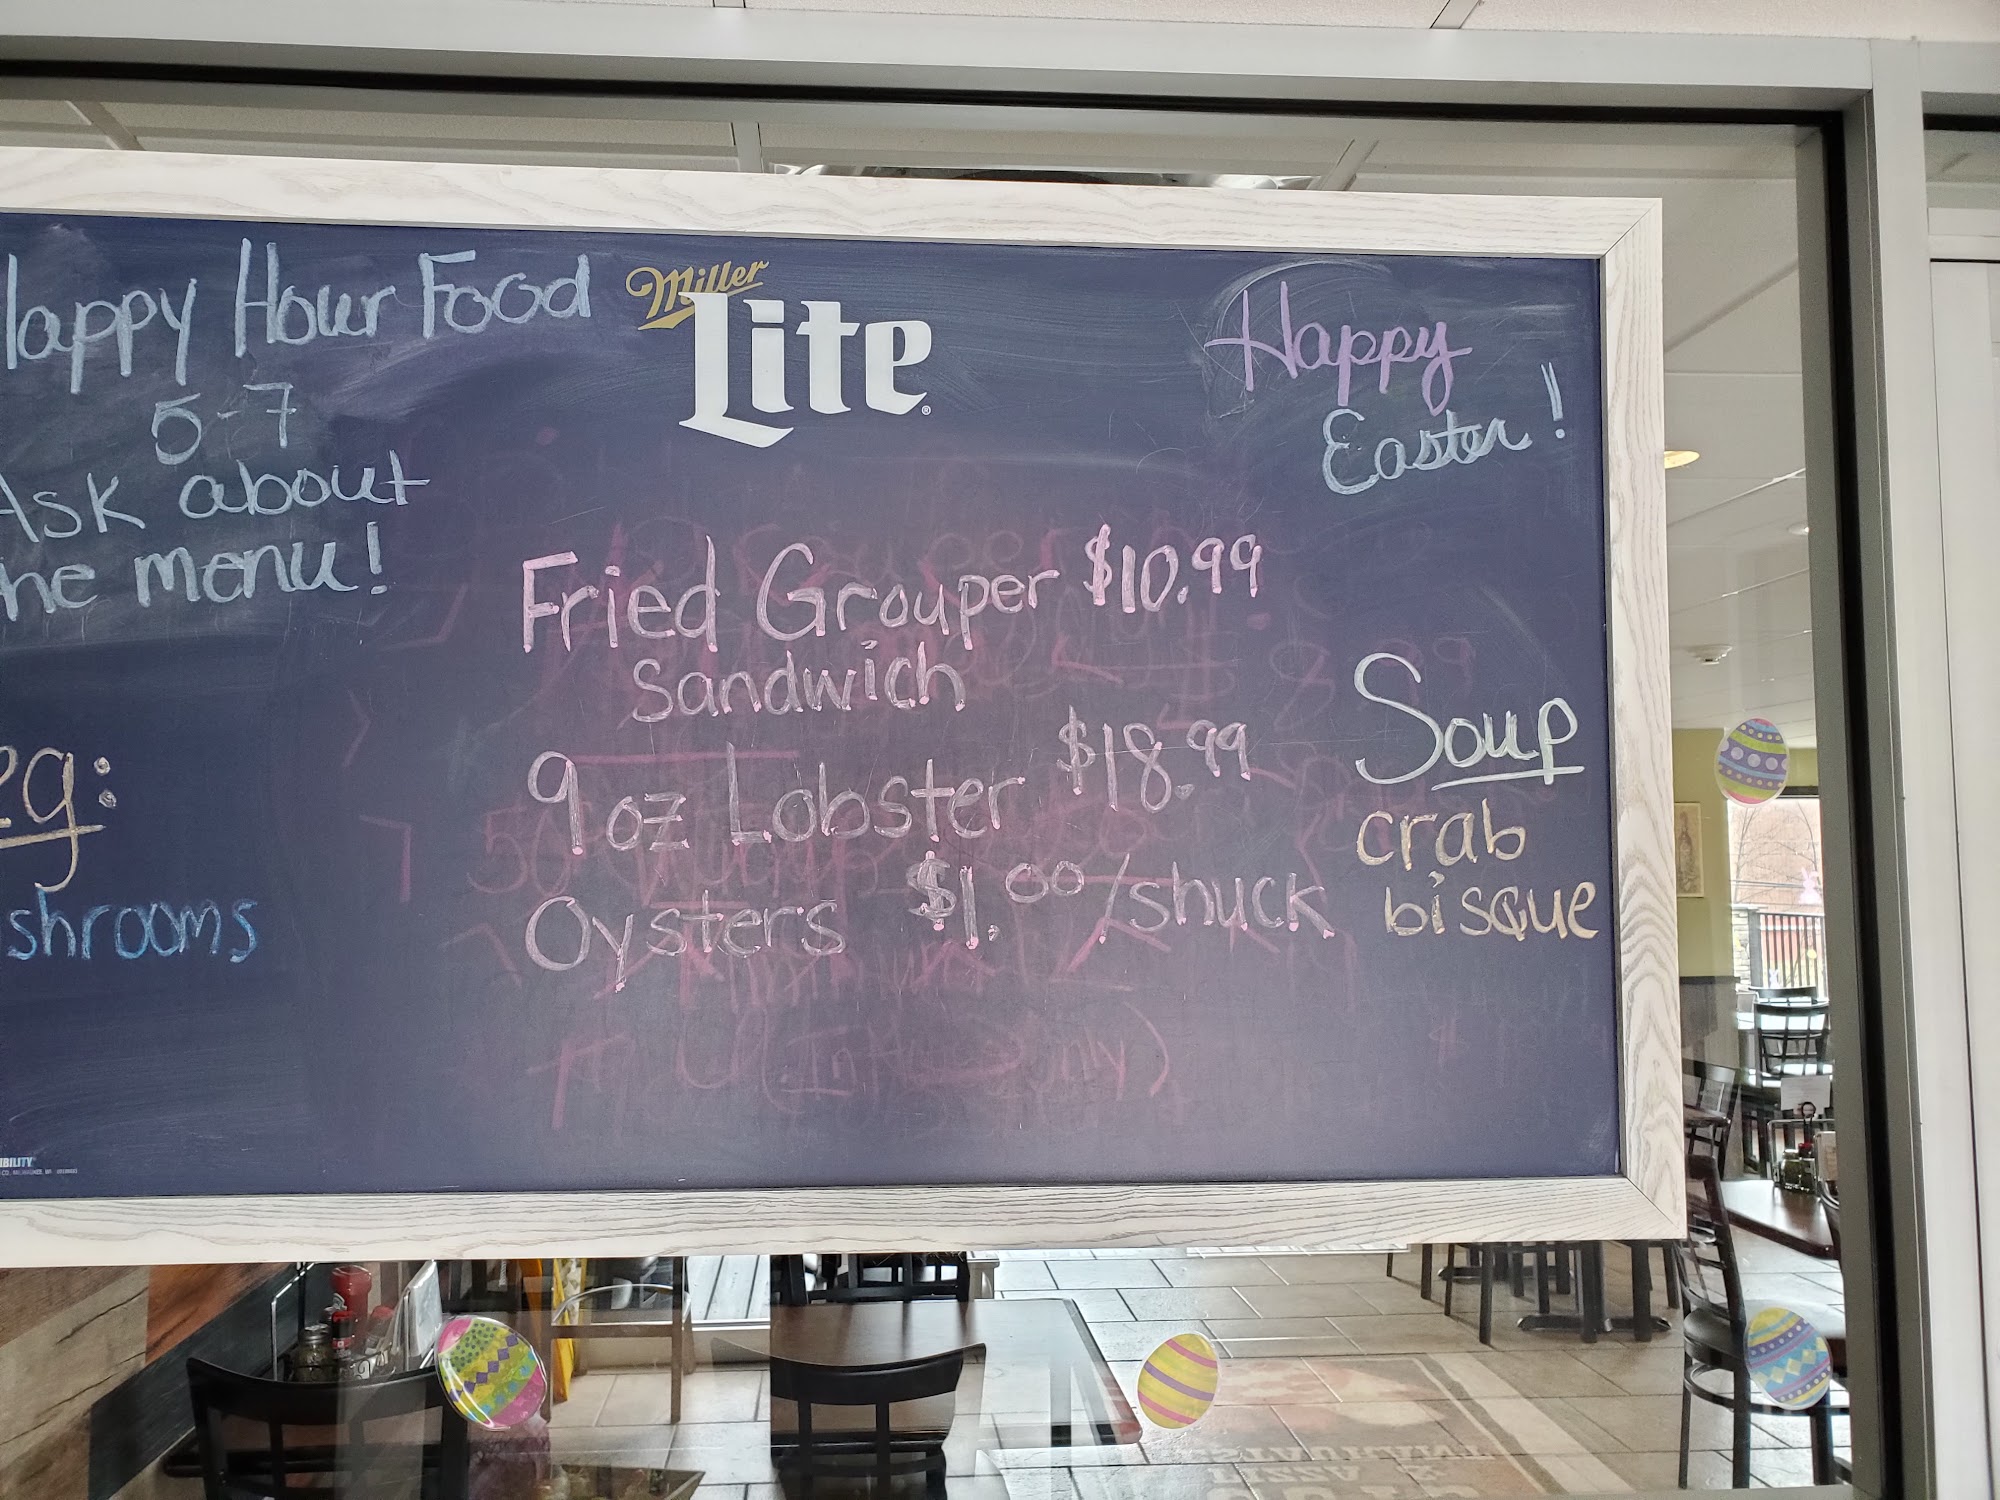 Happy Hour Food
5-7
Ask about
the menu!
Miller
Lite
Happy
Easter!
Fried Grouper $10.99
Sandwich
9 oz Lobster $18.99
Oysters $1.00/shuck
Soup
crab
bisque
eg:
shrooms